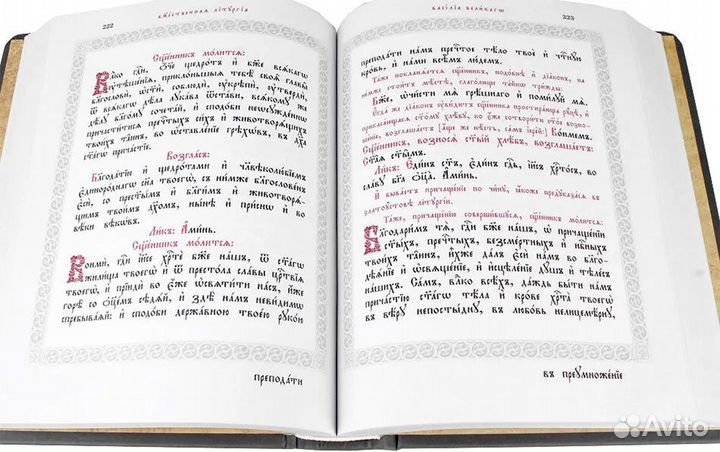 222
Бж҃е́ственнаѧ лїтꙋргі́а
Сщ҃е́нникъ мо́литсѧ:
Влⷣко гдⷭ҇и, ѻ҆́ч҃е щедро́тъ и҆ бж҃е всѧ́кагѡ
ᲂу҆тѣше́нїѧ, приклони́вшыѧ тебѣ̀ своѧ̑ главы̑
бл҃гословѝ, ѡ҆ст҃ѝ, соблюдѝ, ᲂу҆крѣпѝ, ᲂу҆твердѝ,
ѿ всѧ́кагѡ дѣ́ла лꙋка́ва ѿста́ви, всѧ́комꙋ же
дѣ́лꙋ бл҃го́мꙋ сочета́й, и҆ сподо́би неѡсꙋжде́ннѡ
причасти́тисѧ пречⷭ҇тыхъ си́хъ и҆ животворѧ́щихъ
твои́хъ та̑инъ, во ѡ҆ставле́нїе грѣхѡ́въ, въ дх҃а
ст҃а́гѡ прича́стїе.
Возгла́съ:
Бл҃года́тїю и҆ щедро́тами и҆ чл҃вѣколю́бїемъ
є҆диноро́днагѡ сн҃а твоегѡ̀, съ ни́мже бл҃гослове́нъ
є҆сѝ, со прест҃ы́мъ и҆ бл҃ги́мъ и҆ животворѧ́-
щимъ твои́мъ дх҃омъ, ны́нѣ и҆ при́снѡ и҆ во
вѣ́ки вѣкѡ́въ.
Ли́къ: А҆ми́нь.
Сщ҃е́нникъ мо́литсѧ:
Вонмѝ, гдⷭ҇и і҆и҃се хрⷭ҇тѐ бж҃е на́шъ, ѿ ст҃а́гѡ
жили́ща твоегѡ̀ и҆ ѿ престо́ла сла́вы црⷭ҇твїѧ
твоегѡ̀, и҆ прїидѝ во є҆́же ѡ҆ст҃и́ти на́съ, и҆́же
горѣ̀ со ѻ҆ц҃е́мъ сѣдѧ́й, и҆ здѣ̀ на́мъ неви́димѡ
пребыва́ѧй: и҆ сподо́би держа́вною твое́ю рꙋко́ю
препода́ти
Васі́лїа вели́кагѡ
223
препода́ти на́мъ пречⷭ҇тое тѣ́ло твоѐ и҆ чⷭ҇тнꙋ́ю
кро́вь, и҆ на́ми всѣ̑мъ лю́демъ.
Та́же покланѧ́етсѧ сщ҃е́нникъ, подо́бнѣ и҆ дїа́конъ, на
не́мже стои́тъ мѣ́стѣ, глаго́люще та́й, три́жды:
Бж҃е, ѡ҆чи́сти мѧ̀ грѣ́шнаго и҆ поми́лꙋй мѧ̀.
Є҆гда́ же дїа́конъ ᲂу҆ви́дитъ сщ҃е́нника простира́юща рꙋ́цѣ, и҆
прикаса́ющасѧ ст҃о́мꙋ хлѣ́бꙋ, во є҆́же сотвори́ти ст҃о́е возно-
ше́нїе, возглаша́етъ [а҆́ще же нѣ́сть, са́мъ і҆ере́й]: Во́нмемъ.
Сщ҃е́нникъ, вознося̀ ст҃ы́й хлѣ́бъ, возглаша́етъ:
Ст҃а̑ѧ ст҃ы̑мъ.
Ли́къ: Є҆ди́нъ ст҃ъ, є҆ди́нъ гдⷭ҇ь, і҆и҃съ хрⷭ҇то́съ, во
сла́вꙋ бг҃а ѻ҆ц҃а̀. А҆ми́нь.
И҆ быва́етъ причаще́нїе по чи́нꙋ, ꙗ҆́коже предꙋказа́сѧ въ
златоꙋ́стовѣ лїтꙋргі́и.
Та́же, причаще́нїю соверши́вшꙋсѧ, сщ҃е́нникъ мо́литсѧ:
Бл҃годари́мъ тѧ̀, гдⷭ҇и бж҃е на́шъ, ѡ҆ причаще́нїи
ст҃ы́хъ, пречⷭ҇тыхъ, безсме́ртныхъ и҆ нбⷭ҇ныхъ
твои́хъ та̑инъ, ꙗ҆̀же да́лъ є҆сѝ на́мъ во бл҃го-
дѣѧ́нїе и҆ ѡ҆сщ҃е́нїе, и҆ и҆сцѣле́нїе дꙋ́шъ и҆ тѣле́съ
на́шихъ. Са́мъ, влⷣко всѣ́хъ, да́ждь бы́ти на́мъ
прича́стїю ст҃а́гѡ тѣ́ла и҆ кро́ве хрⷭ҇та̀ твоегѡ̀
въ вѣ́рꙋ непосты́днꙋ, въ любо́вь нелицемѣ́рнꙋ,
въ преꙋмноже́нїе
Avito